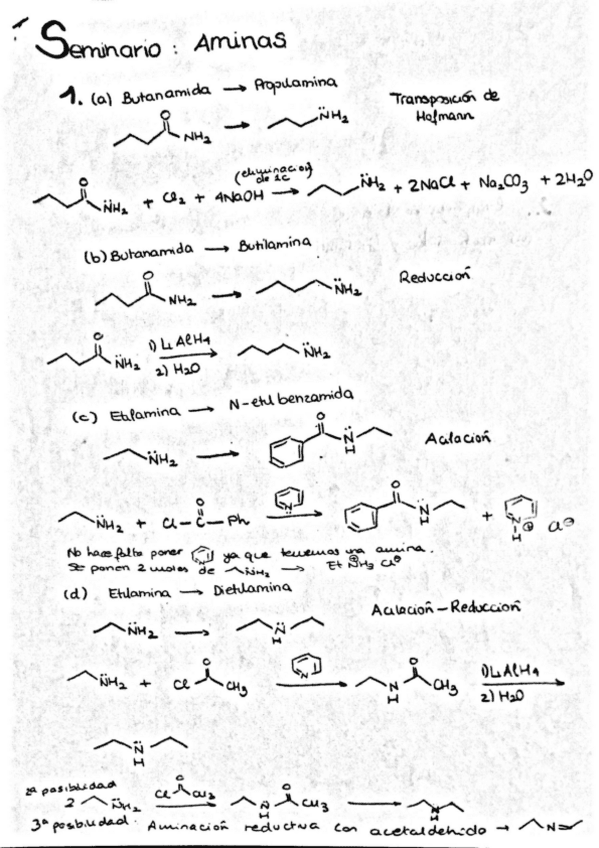 Seminario: Aminas
1. (a) Butanamida → Propilamina
Transposición de
Hofmann
O
NH2 → NH2
(eliminación
de 1C
O
NH2 + Cl2 + 4NaOH → NH2 + 2NaCl + Na2CO3 + 2H2O
(b) Butanamida → Butilamina
Reducción
O
NH2 → NH2
O
NH2 1) LiAlH4 NH2
2) H2O
(c) Etilamina → N-etilbenzamida
Acilación
O
NH2 → N
H
O O
NH2 + Cl-C-Ph N → N + N Cl⊖
H H ⊕
No hace falta poner N ya que tenemos una amina.
Se ponen 2 moles de NH2 → Et NH3 Cl⊖
⊕
(d) Etilamina → Dietilamina
Acilación-Reducción
NH2 → N
H
O O
NH2 + Cl CH3 N → N CH3 1) LiAlH4
H 2) H2O
N
H
2ª posibilidad
O O
2 NH2 Cl CH3 → N CH3 → N
H H
3ª posibilidad: Aminación reductiva con acetaldehido → N